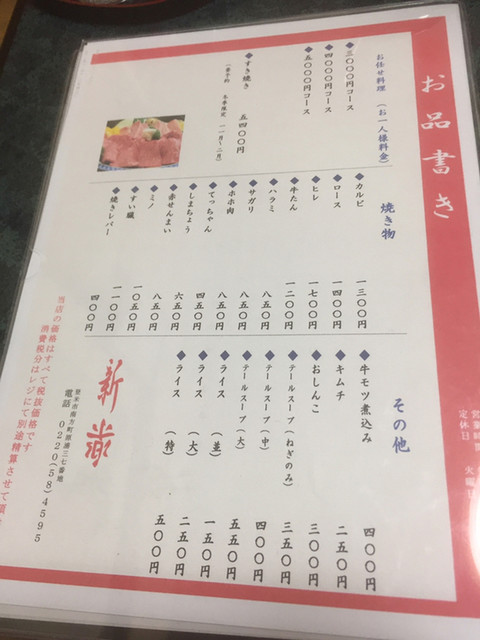 お品書き
お任せ料理 (お一人様料金)
◆三〇〇〇円コース
◆四〇〇〇円コース
◆五〇〇〇円コース
◆すき焼き 五四〇〇円
(要予約 冬季限定 一一月～二月)
焼き物
◆カルビ 一三〇〇円
◆ロース 一四〇〇円
◆ヒレ 一七〇〇円
◆牛たん 一二〇〇円
◆ハラミ 八五〇円
◆サガリ 八五〇円
◆ホホ肉 八五〇円
◆てっちゃん 四五〇円
◆しまちょう 六五〇円
◆赤せんまい 八五〇円
◆ミノ 一〇五〇円
◆すい臓 一一〇〇円
◆焼きレバー 四〇〇円
その他
◆牛モツ煮込み 四〇〇円
◆キムチ 二五〇円
◆おしんこ 三〇〇円
◆テールスープ(ねぎのみ) 三五〇円
◆テールスープ(中) 四〇〇円
◆テールスープ(大) 五五〇円
◆ライス (並) 一五〇円
◆ライス (大) 二五〇円
◆ライス (特) 五〇〇円
定休日 火曜日
登米市南方町
電話 0220(58)4595
当店の価格はすべて税抜価格です
消費税分はレジにて別途精算させて頂